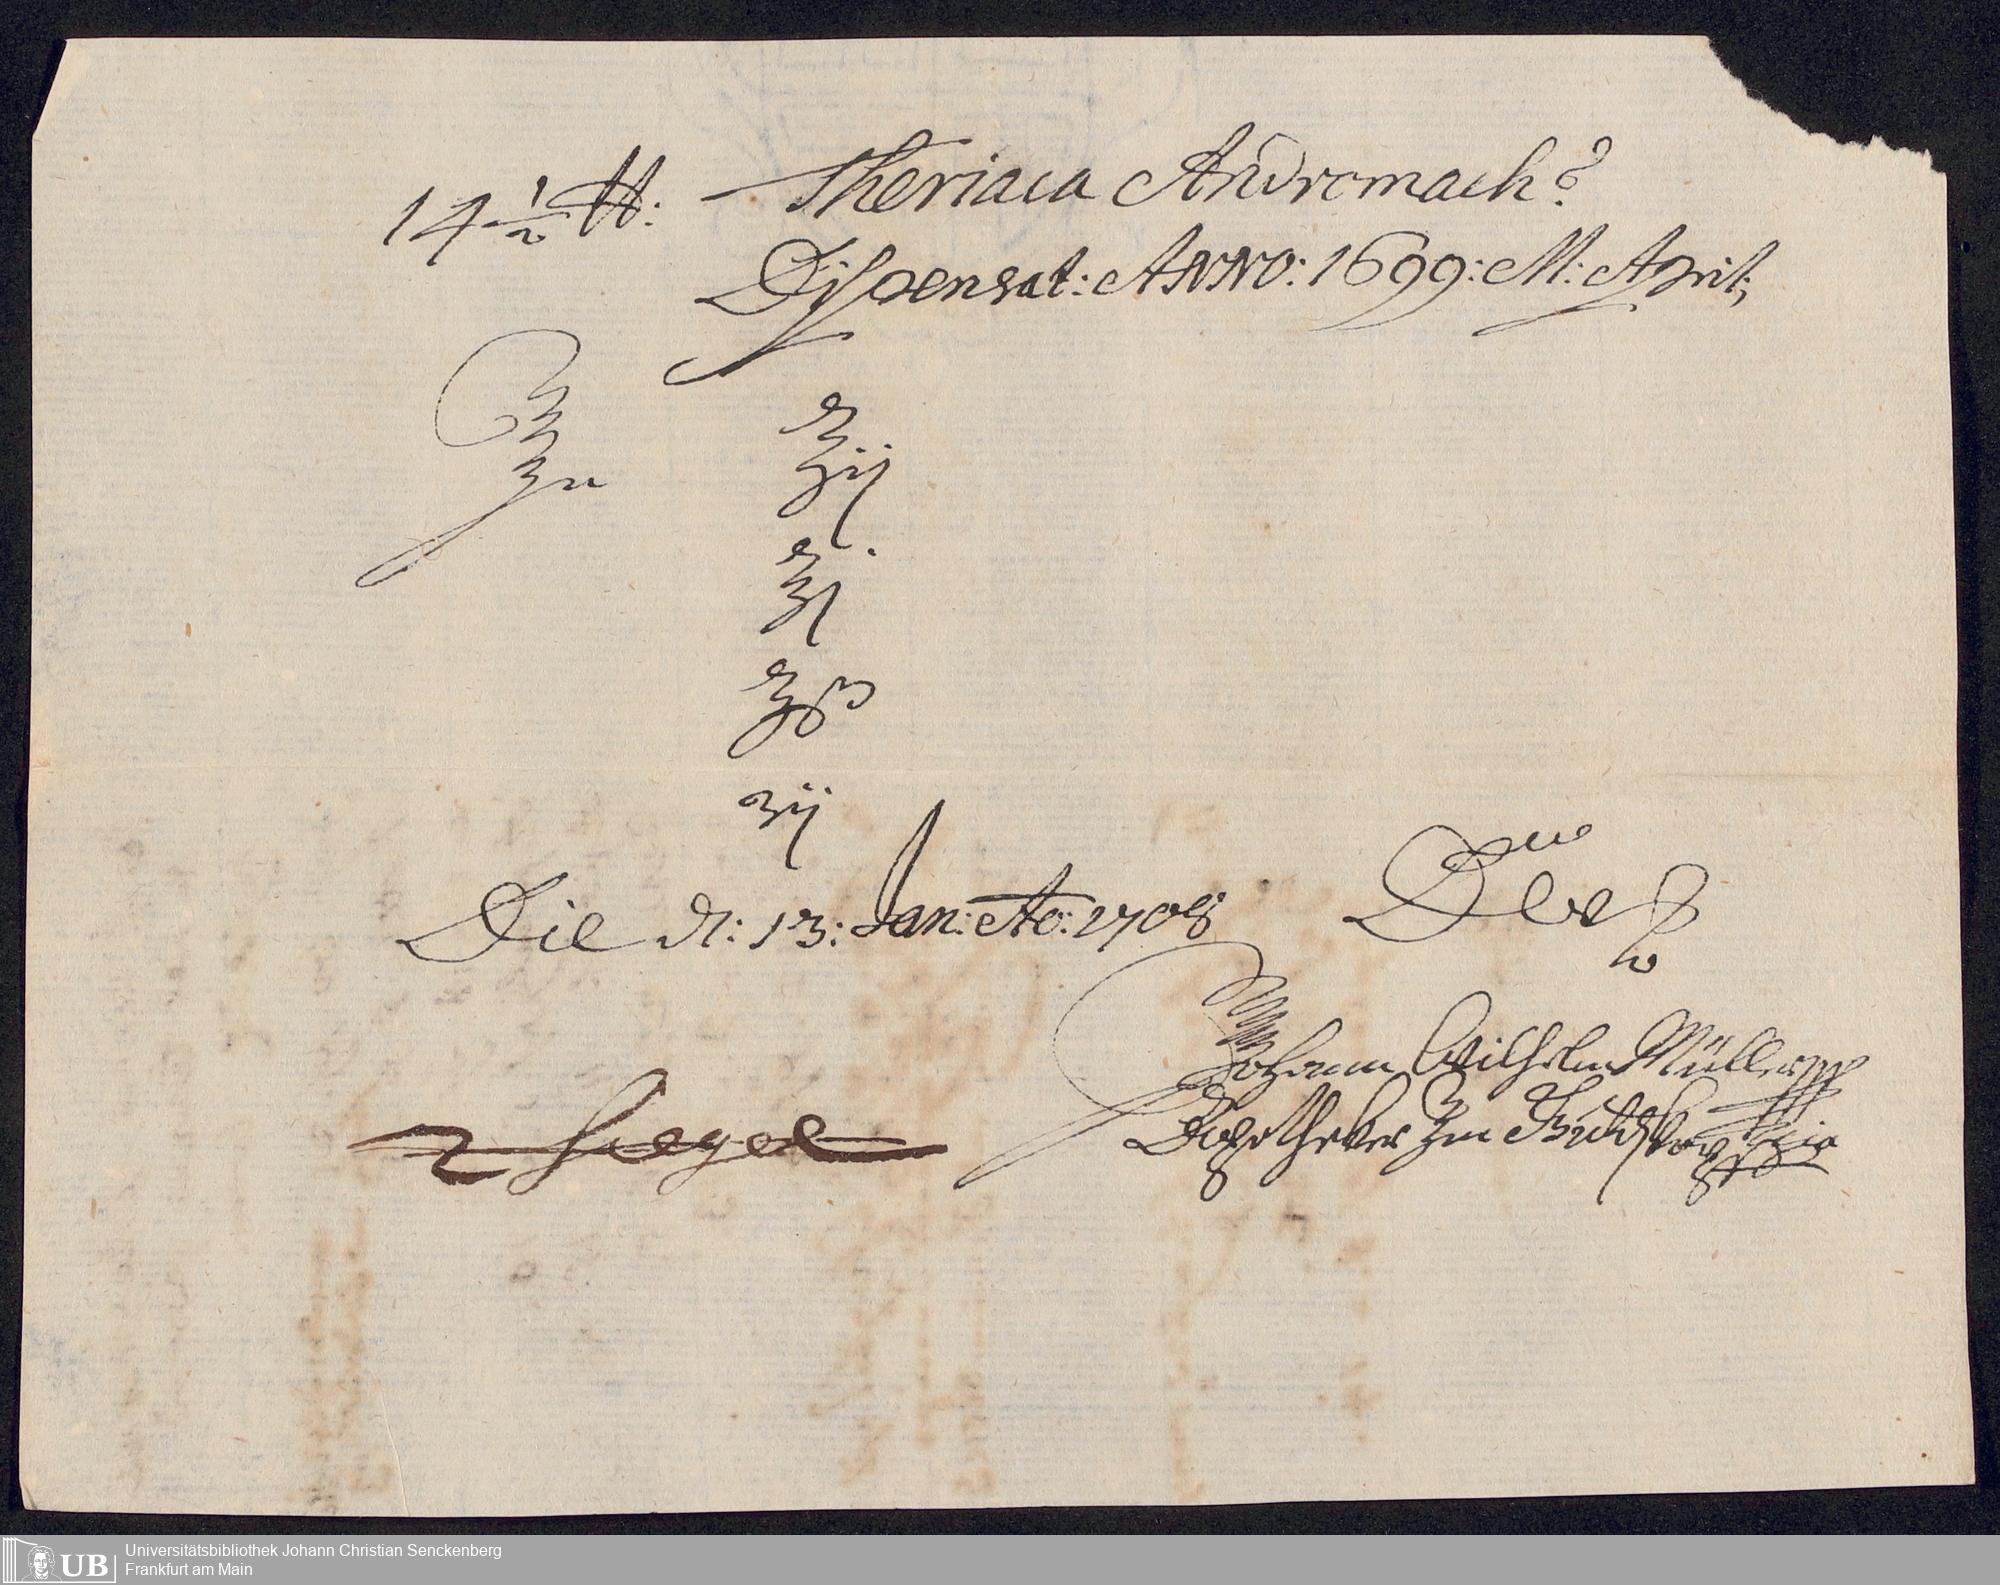 14 ½ ℔: Theriaca Andromach:
Dispensat: ANNO: 1699: M: April:
Zu
℥ij
℥j
℥ß
ʒij
Die d: 13: Jan: Ao: 1708
Johann Wilhelm Müller
Apotheker Zu
UB
Universitätsbibliothek Johann Christian Senckenberg
Frankfurt am Main